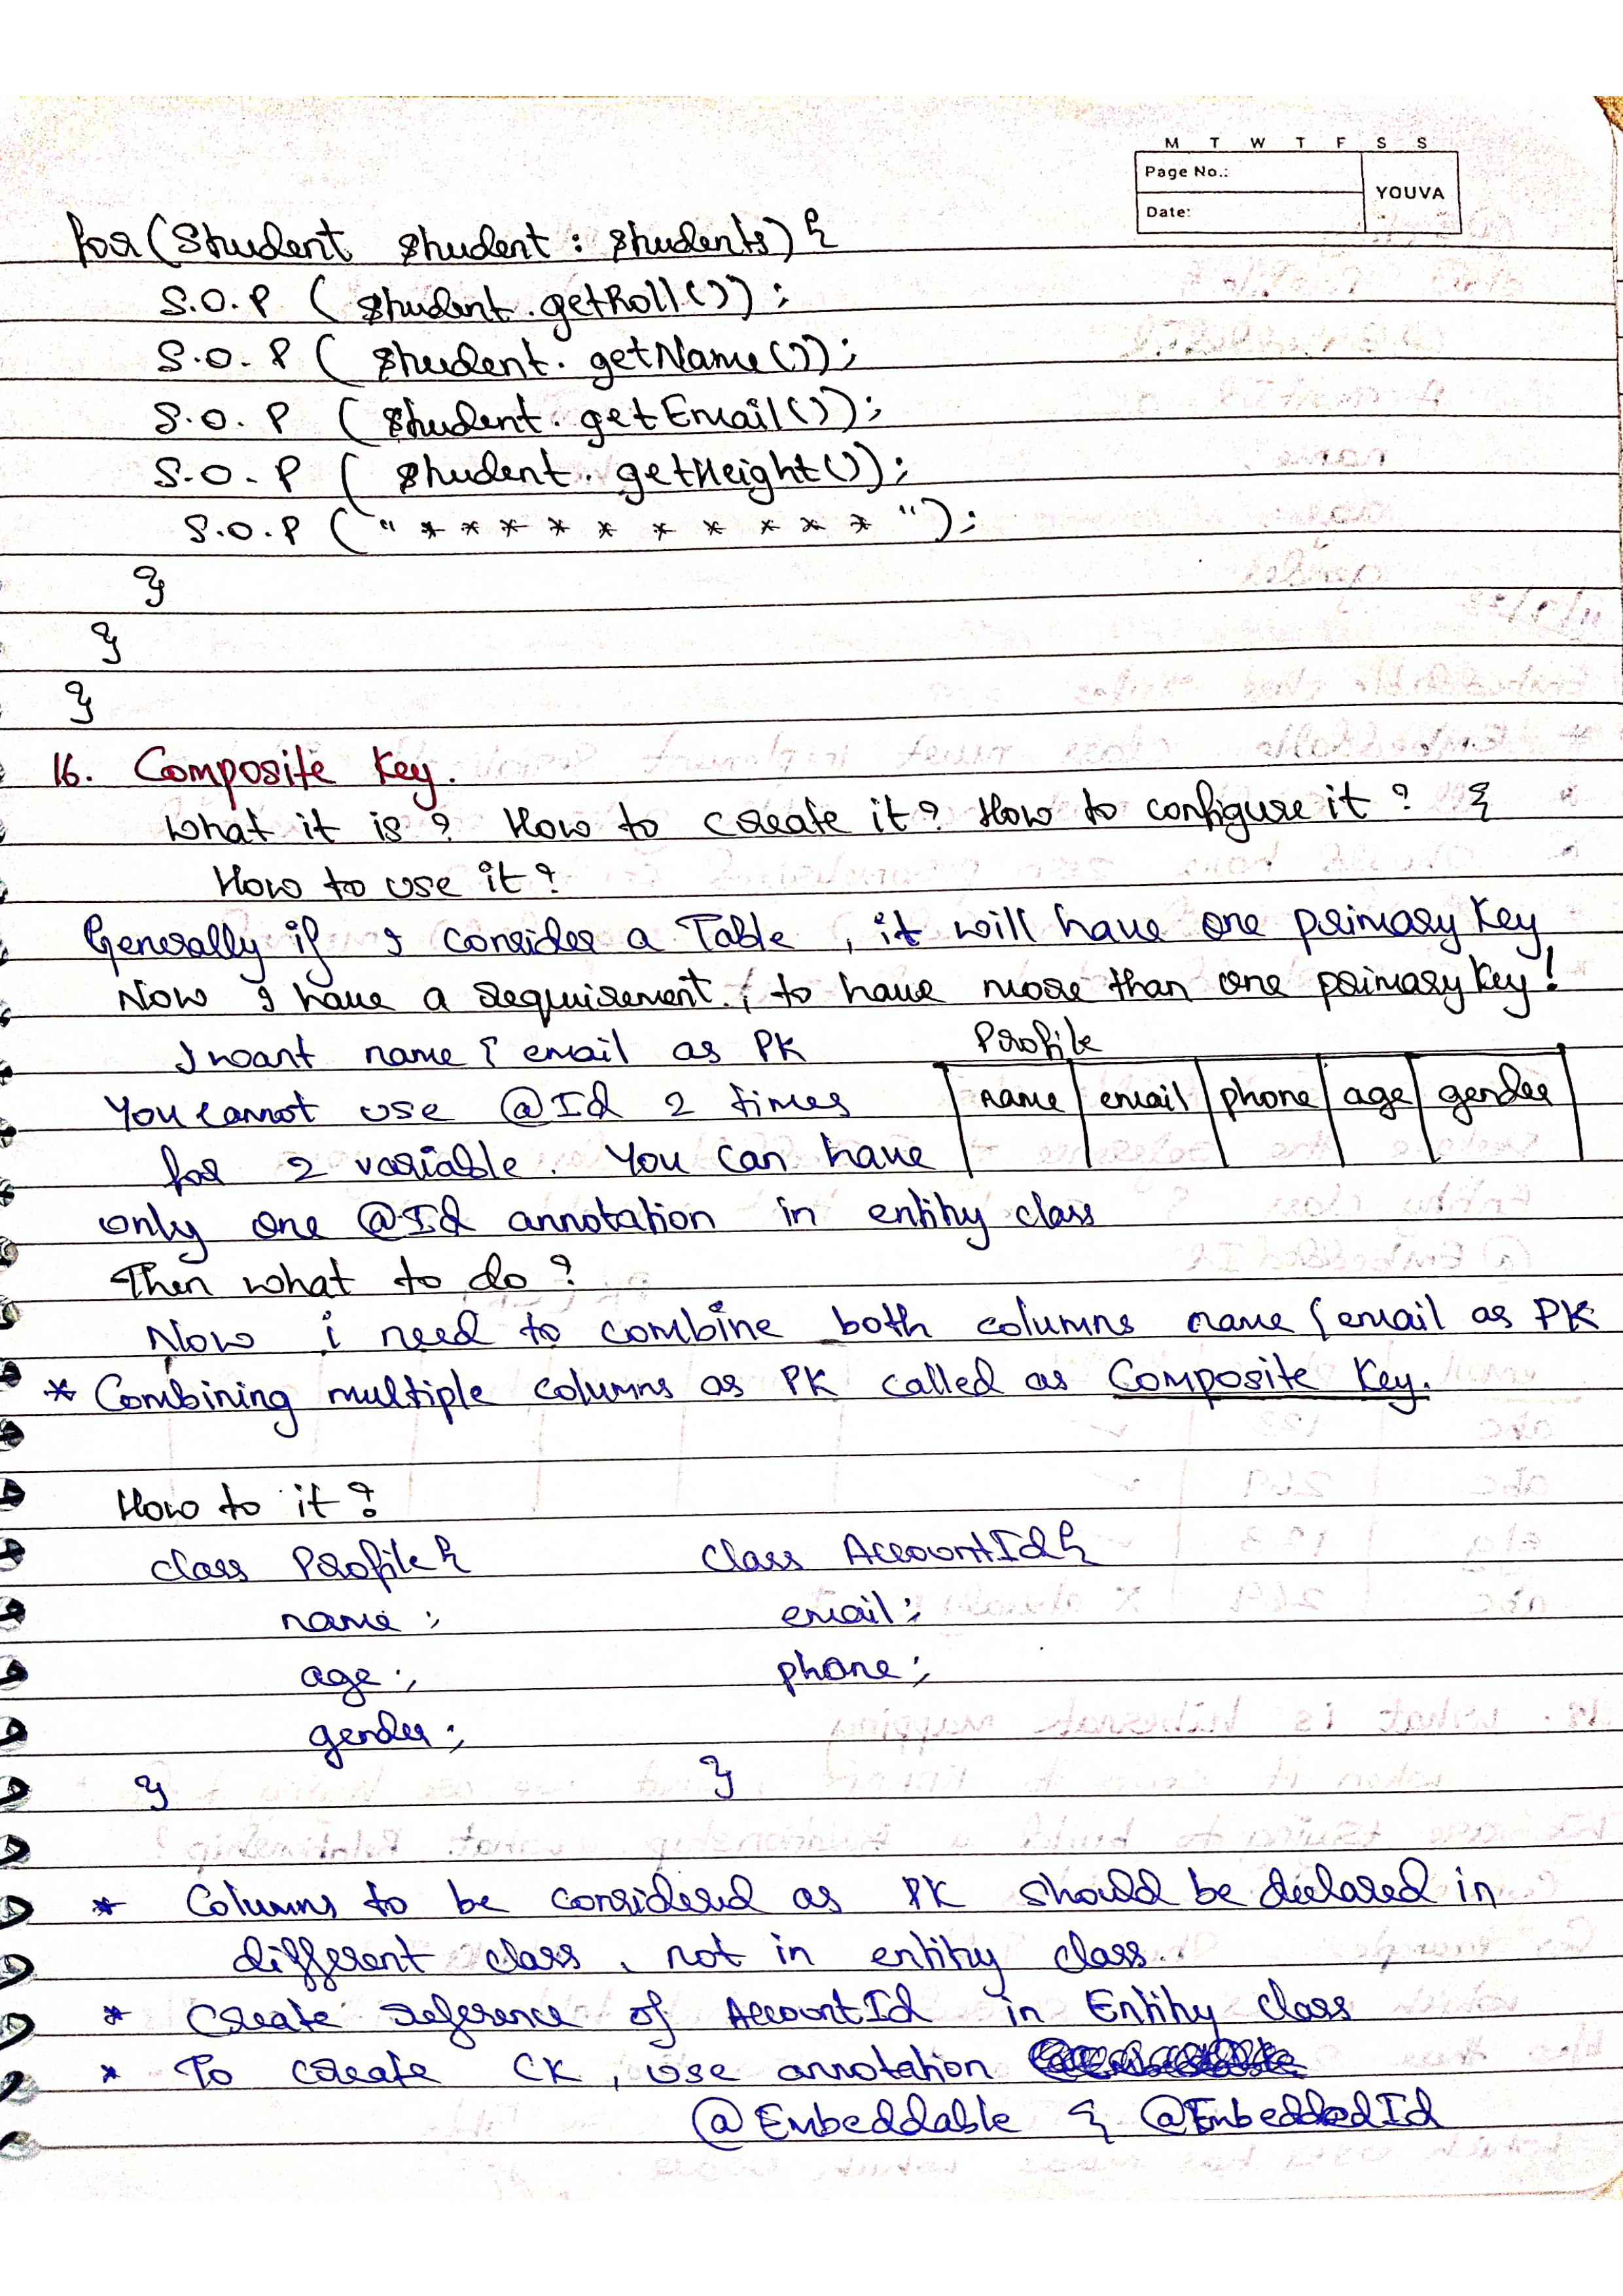 M T W T F S S
Page No.:
YOUVA
Date:
for(Student student : students){
S.O.P ( student.getRoll());
S.O.P ( student.getName());
S.O.P ( student.getEmail());
S.O.P ( student.getHeight());
S.O.P ("* * * * * * * * * *");
}
}
}
16. Composite Key.
What it is? How to create it? How to configure it? &
How to use it?
Generally if I consider a Table, it will have one primary key
Now I have a requirement, to have more than one primary key!
I want name & email as PK
Profile
name email phone age gender
You cannot use @Id 2 times
for 2 variable. You can have
only one @Id annotation in entity class
Then what to do?
Now i need to combine both columns name & email as PK
* Combining multiple columns as PK called as Composite Key.
How to it?
class Profile{ class AccountId{
name; email;
age; phone;
gender;
} }
* Columns to be considered as PK should be declared in
different class, not in entity class.
* Create reference of AccountId in Entity class
* To create CK, use annotation
@Embeddable & @EmbeddedId